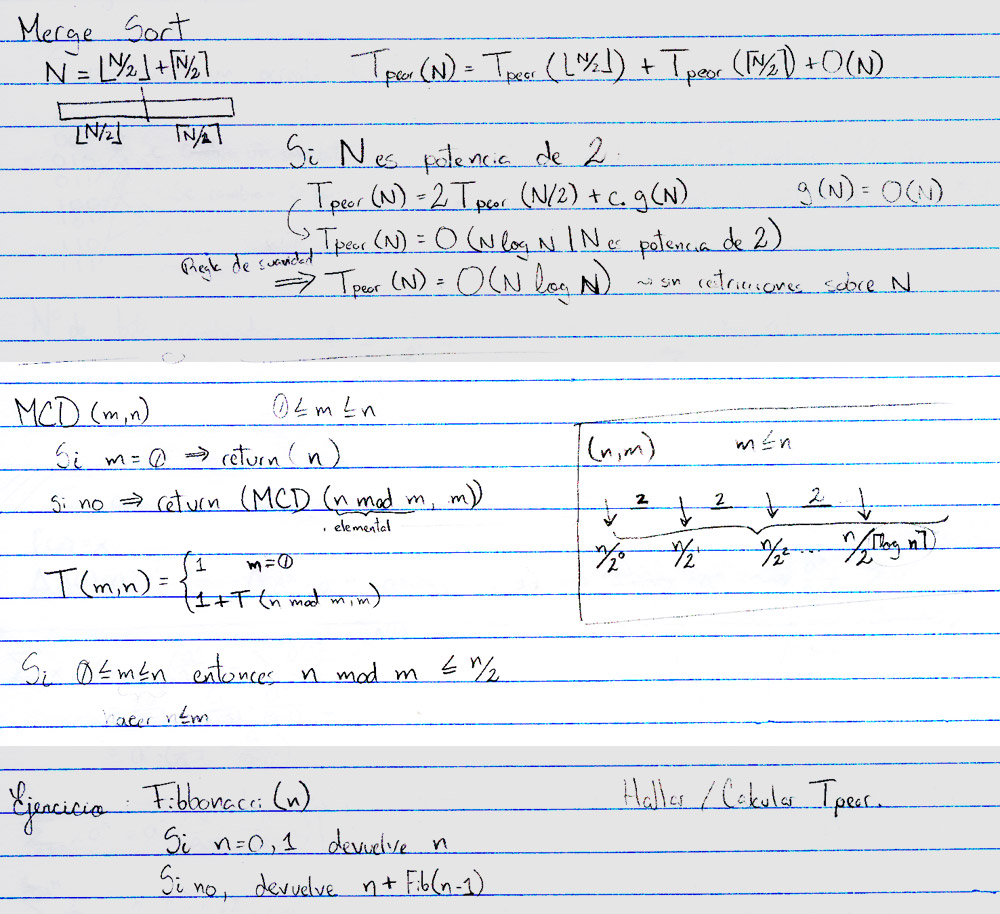 Merge Sort
N = ⌊N/2⌋ + ⌈N/2⌉
T peor (N) = T peor (⌊N/2⌋) + T peor (⌈N/2⌉) + O(N)
⌊N/2⌋ ⌈N/2⌉
Si N es potencia de 2:
T peor (N) = 2 T peor (N/2) + c. g(N) g(N) = O(N)
T peor (N) = O(N log N | N es potencia de 2)
Regla de suavidad
⇒ T peor (N) = O(N log N) ~ sin retricciones sobre N
MCD (m,n) 0 ≤ m ≤ n
Si m = 0 ⇒ return (n)
si no ⇒ return (MCD (n mod m, m))
elemental
T(m,n) = { 1 m=0
1 + T (n mod m, m)
(n,m) m ≤ n
2 2 2
n/2⁰ n/2¹ n/2² ... n/2^⌈log n⌉
Si 0 ≤ m ≤ n entonces n mod m ≤ n/2
hacer n ≤ m
Ejercicio: Fibbonacci (n) Hallar / Calcular T peor.
Si n=0,1 devuelve n
Si no, devuelve n + Fib(n-1)